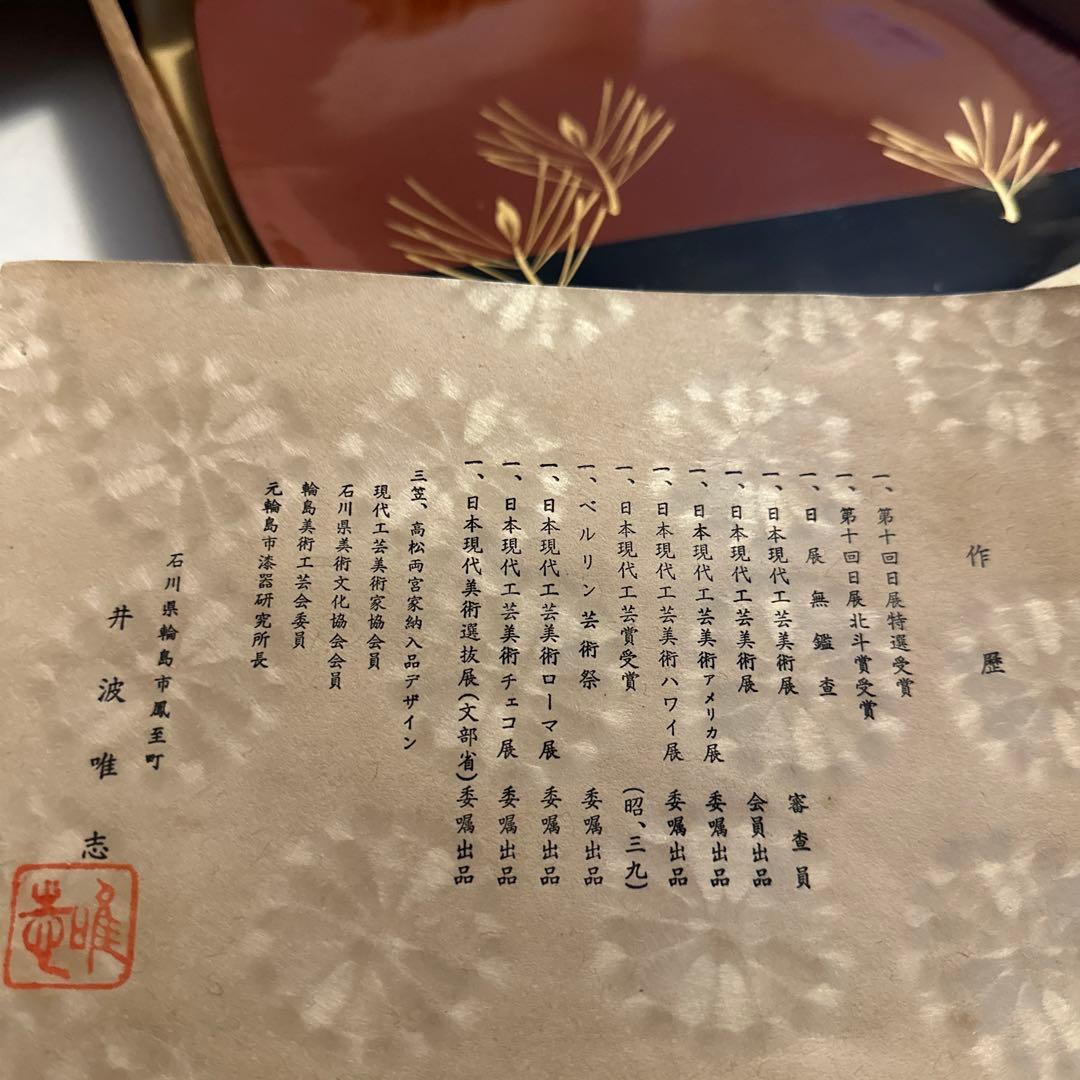 作歴
一、第十回日展特選受賞
一、第十回日展北斗賞受賞
一、日展無鑑査
一、日本現代工芸美術展 審査員
一、日本現代工芸美術展 会員出品
一、日本現代工芸美術アメリカ展 委嘱出品
一、日本現代工芸美術ハワイ展 委嘱出品
一、日本現代工芸賞受賞 (昭、三九)
一、ベルリン芸術祭 委嘱出品
一、日本現代工芸美術ローマ展 委嘱出品
一、日本現代工芸美術チェコ展 委嘱出品
一、日本現代美術選抜展(文部省)委嘱出品
三笠、高松両宮家納入品デザイン
現代工芸美術家協会員
石川県美術文化協会会員
輪島美術工芸会委員
元輪島市漆器研究所長
石川県輪島市鳳至町
井波唯志
唯志